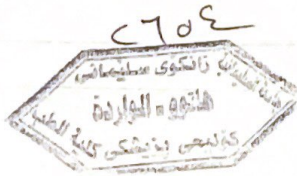 ٢٦٥٤
زانكوى سليمانى
هاتوو - الواردة
كوليجى پزيشكى كلية الطب